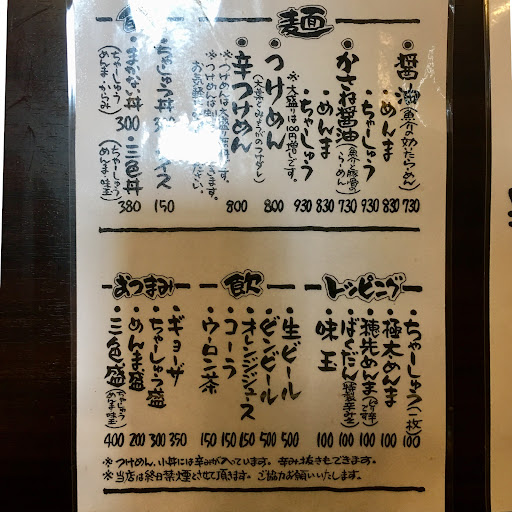 麺
・醤油(魚介の効いたらーめん) 730
・めんま 830
・ちゃーしゅう 930
・かさね醤油(魚介と豚骨のらーめん) 730
・めんま 830
・ちゃーしゅう 930
・つけめん 800
※大盛りは100円増です。
・辛つけめん 800
ちゃーしゅう丼 300
ライス 150
まかない丼 300
(ちゃーしゅう めんま・からみ)
・三色丼 380
(ちゃーしゅう めんま・味玉)
トッピング
・ちゃーしゅう(一枚) 100
・極太めんま 100
・穂先めんま 100
・ばくだん(特製辛みそ) 100
・味玉 100
飲
・生ビール 500
・ビンビール 500
・オレンジジュース 150
・コーラ 150
・ウーロン茶 150
おつまみ
・ギョーザ 350
・ちゃーしゅう盛 300
・めんま盛 200
・三色盛(ちゃーしゅう めんま・味玉) 400
※つけめん、小丼には辛みが入っています。辛み抜きもできます。
※当店は終日禁煙とさせて頂きます。ご協力お願いいたします。